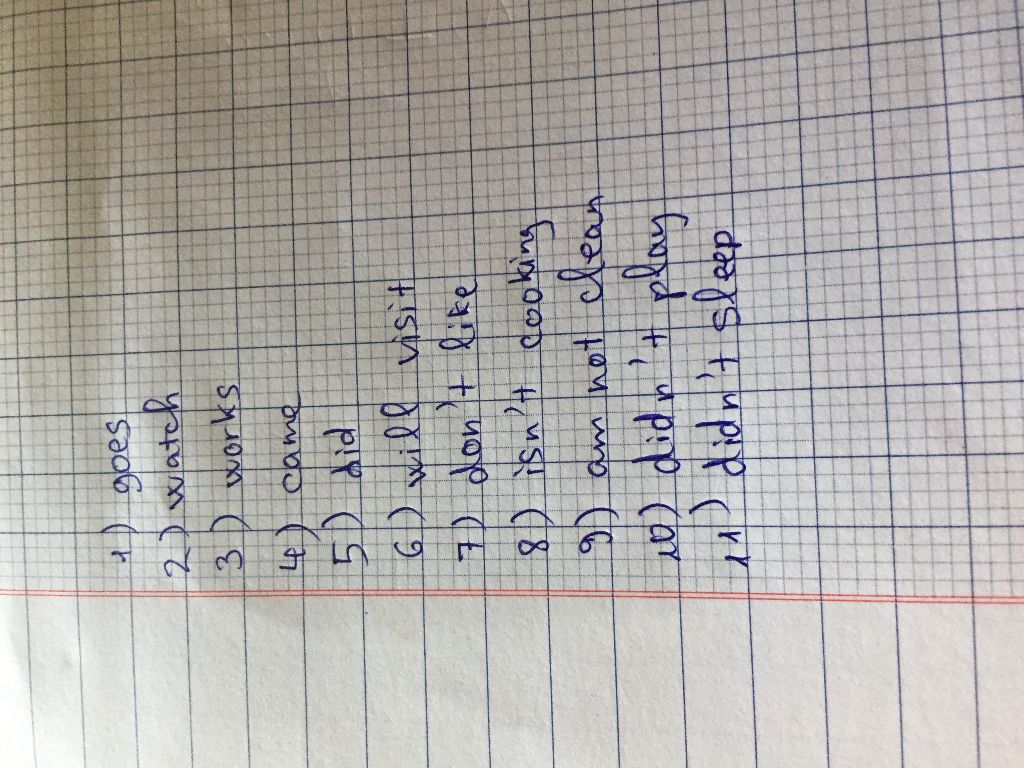 1) goes
2) watch
3) works
4) came
5) did
6) will visit
7) don't like
8) isn't cooking
9) am not clean
10) didn't play
11) didn't sleep